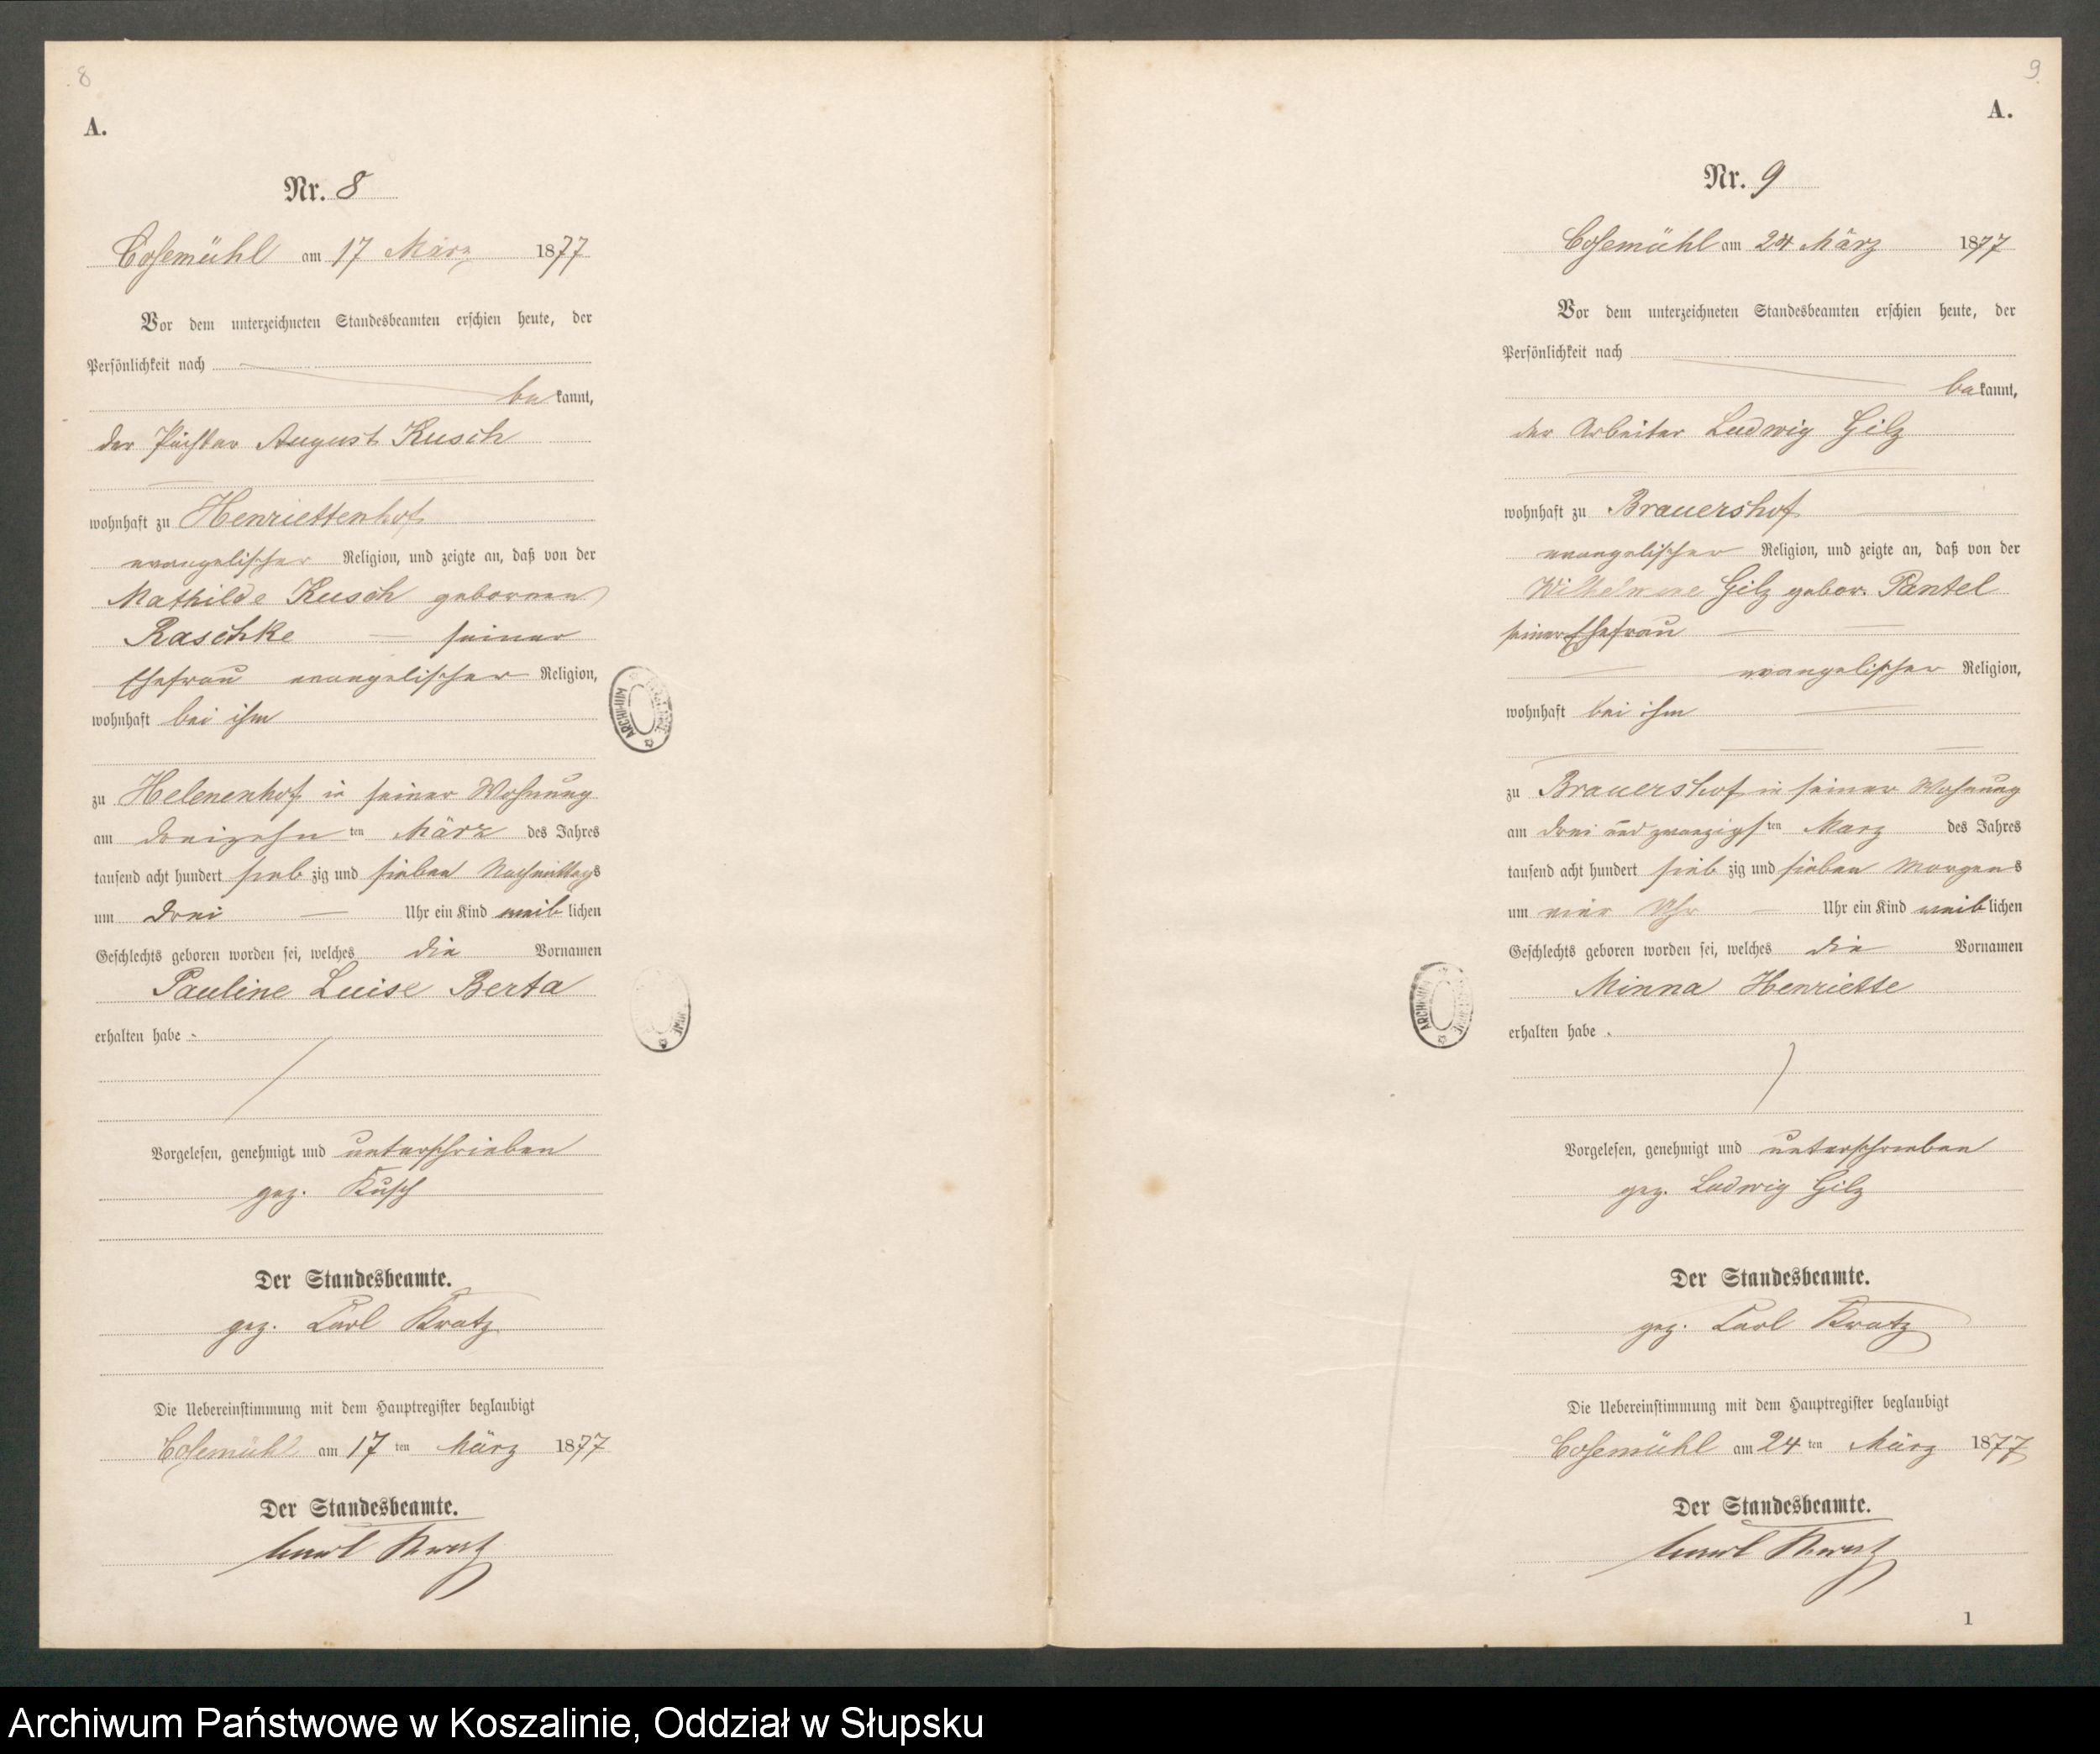 8
A.
Nr. 8
Cosemühl am 17 März 1877
Vor dem unterzeichneten Standesbeamten erschien heute, der
Persönlichkeit nach
bekannt,
der Pächter August Kusch
wohnhaft zu Henriettenhof
evangelischer Religion, und zeigte an, daß von der
Mathilde Kusch gebornen
Raschke seiner
Ehefrau evangelischer Religion,
wohnhaft bei ihm
zu Helenenhof in seiner Wohnung
am dreizehn ten März des Jahres
tausend acht hundert sieb zig und sieben Nachmittags
um drei Uhr ein Kind weib lichen
Geschlechts geboren worden sei, welches die Vornamen
Pauline Luise Berta
erhalten habe
Vorgelesen, genehmigt und unterschrieben
gez. Kusch
Der Standesbeamte.
gez. Carl Kratz
Die Uebereinstimmung mit dem Hauptregister beglaubigt
Cosemühl am 17 ten März 1877
Der Standesbeamte.
Carl Kratz
9
A.
Nr. 9
Cosemühl am 24 März 1877
Vor dem unterzeichneten Standesbeamten erschien heute, der
Persönlichkeit nach
bekannt,
der Arbeiter Ludwig Gilz
wohnhaft zu Brauershof
evangelischer Religion, und zeigte an, daß von der
Wilhelmine Gilz gebor. Pantel
seiner Ehefrau
evangelischer Religion,
wohnhaft bei ihm
zu Brauershof in seiner Wohnung
am drei und zwanzigs ten März des Jahres
tausend acht hundert sieb zig und sieben Morgens
um vier Uhr Uhr ein Kind weib lichen
Geschlechts geboren worden sei, welches die Vornamen
Minna Henriette
erhalten habe
Vorgelesen, genehmigt und unterschrieben
gez. Ludwig Gilz
Der Standesbeamte.
gez. Carl Kratz
Die Uebereinstimmung mit dem Hauptregister beglaubigt
Cosemühl am 24 ten März 1877
Der Standesbeamte.
Carl Kratz
1
Archiwum Państwowe w Koszalinie, Oddział w Słupsku